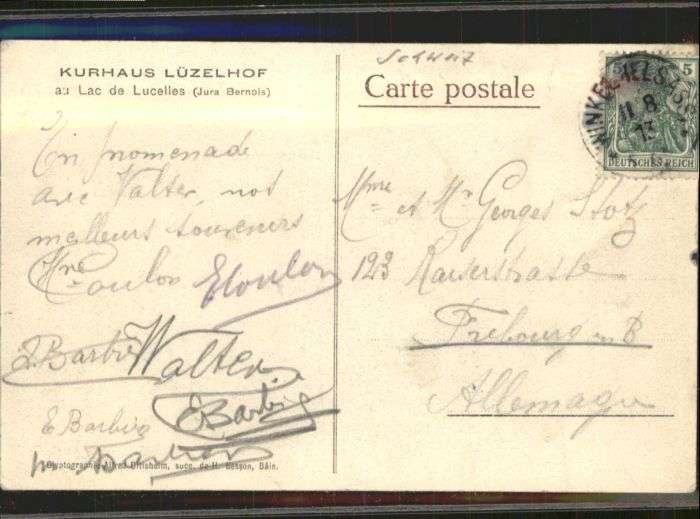 KURHAUS LÜZELHOF
au Lac de Lucelles (Jura Bernois)
En promenade
avec Valter, nos
meilleurs souvenirs
Mme Coulon ECoulon
Barbier Walter
EBarbier
E Barbier
Glyptographie Alfred Ditisheim, succ. de H. Besson, Bâle.
Schweiz
Carte postale
5
WINKEL
11 8
13
DEUTSCHES REICH
Mme et Mr Georges Stotz
123 Kaiserstrasse
Fribourg en B
Allemagne